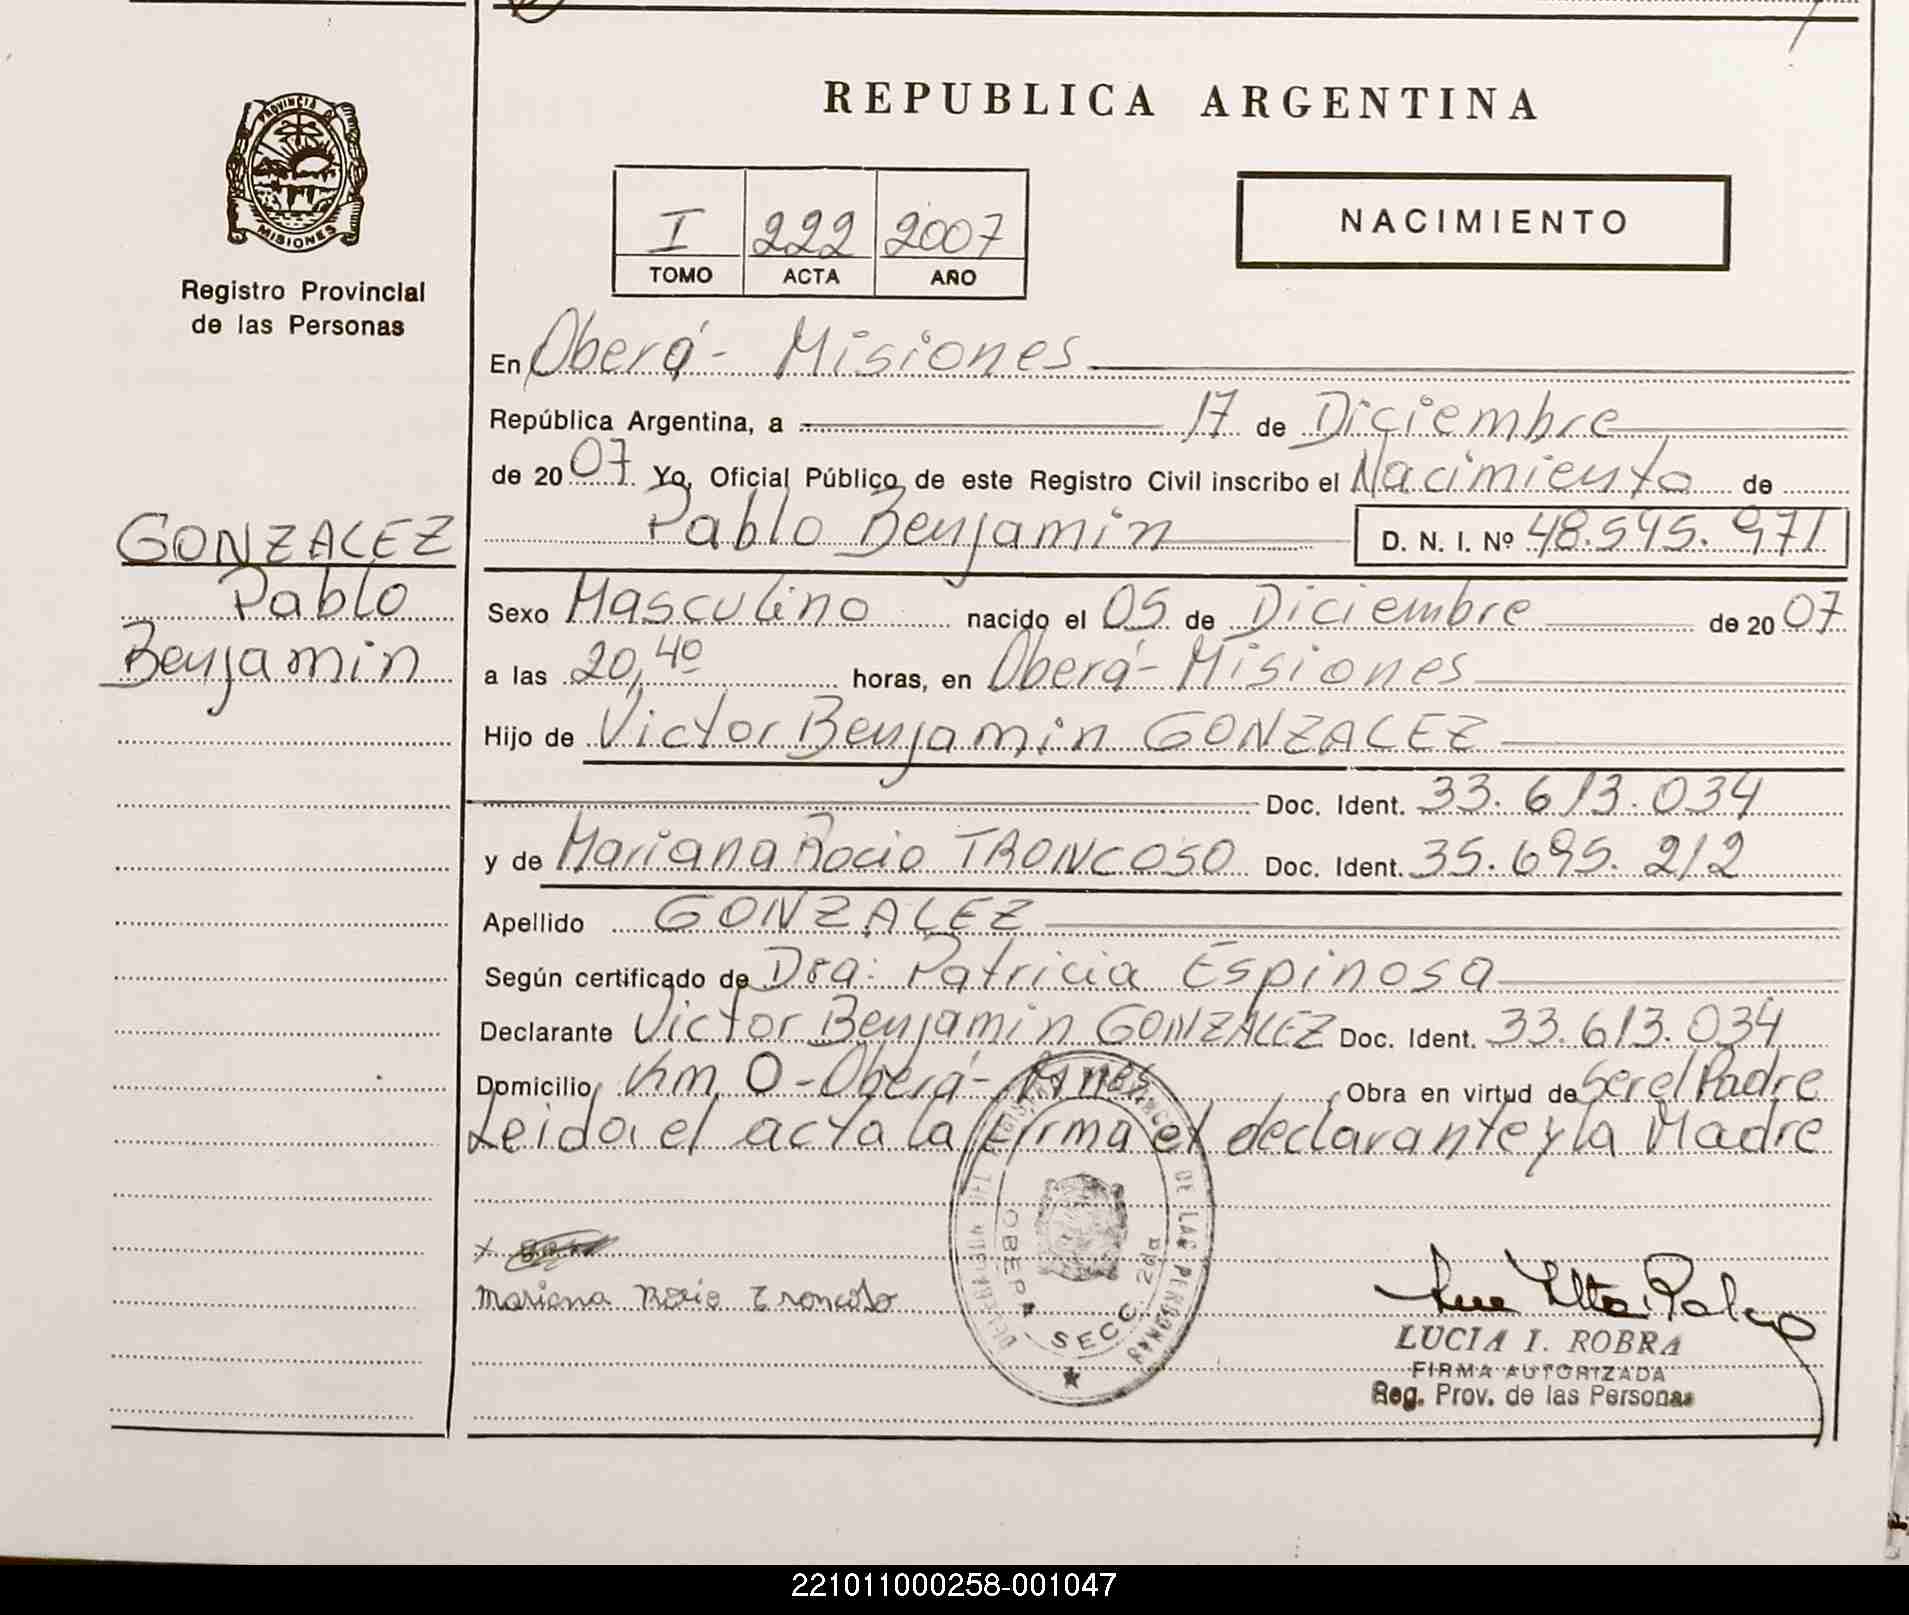 PROVINCIA D
MISIONES
Registro Provincial
de las Personas
GONZALEZ
Pablo
Benjamin
REPUBLICA ARGENTINA
I 222 2007
TOMO ACTA AÑO
NACIMIENTO
En Oberá - Misiones
República Argentina, a 17 de Diciembre
de 2007 Yo, Oficial Público de este Registro Civil inscribo el Nacimiento de
Pablo Benjamin D. N. I. Nº 48.595.971
Sexo Masculino nacido el 05 de Diciembre de 2007
a las 20,40 horas, en Oberá - Misiones
Hijo de Victor Benjamin GONZALEZ
Doc. Ident. 33.613.034
y de Mariana Rocio TRONCOSO Doc. Ident. 35.695.212
Apellido GONZALEZ
Según certificado de Dra: Patricia Espinosa
Declarante Victor Benjamin GONZALEZ Doc. Ident. 33.613.034
Domicilio Km 0 - Oberá - Mnes. Obra en virtud de Ser el Padre
Leida el acta la firma el declarante y la Madre
DE LAS PERSONAS
OBERA SECC. 2da
x
Mariana Rocio Troncoso
LUCIA I. ROBRA
FIRMA AUTORIZADA
Reg. Prov. de las Personas
221011000258-001047